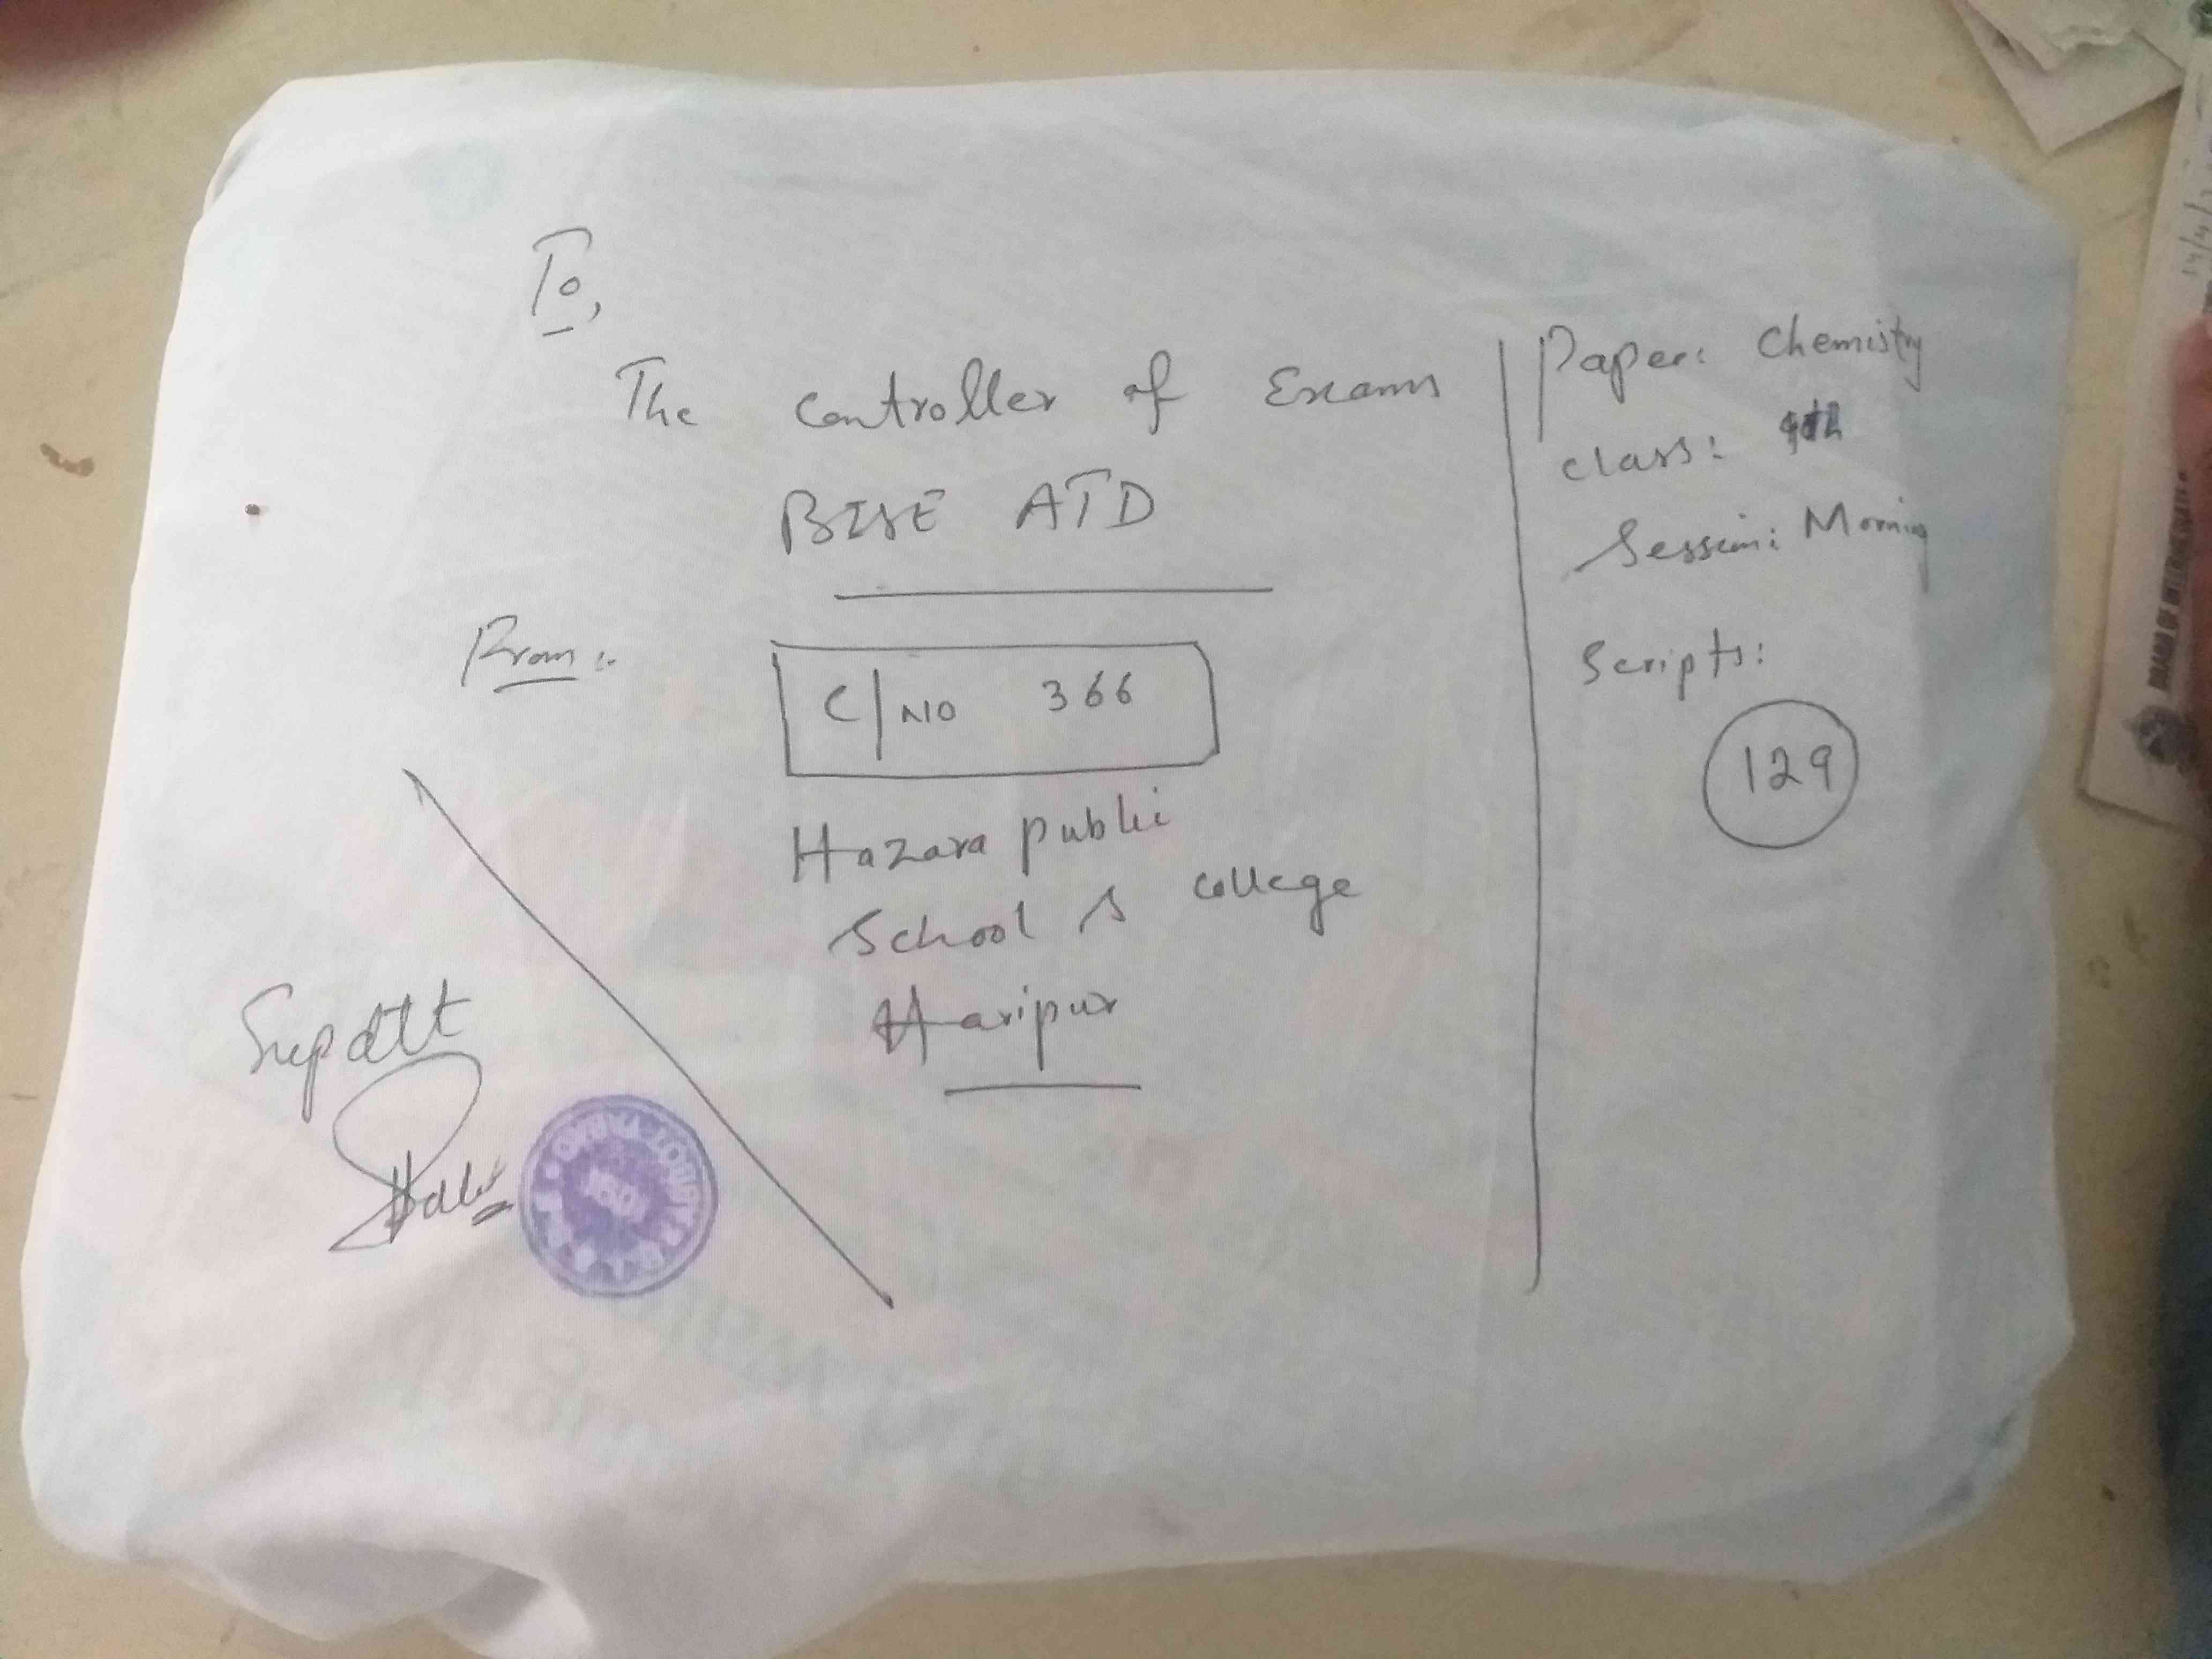 To,
The Controller of Exams
BISE ATD
From:
C/NO 366
Hazara public
School & college
Haripur
Supdtt
Paper: Chemistry
class: 9th
Session: Morning
Scripts:
129
BOARD OF INTERMEDIATE &